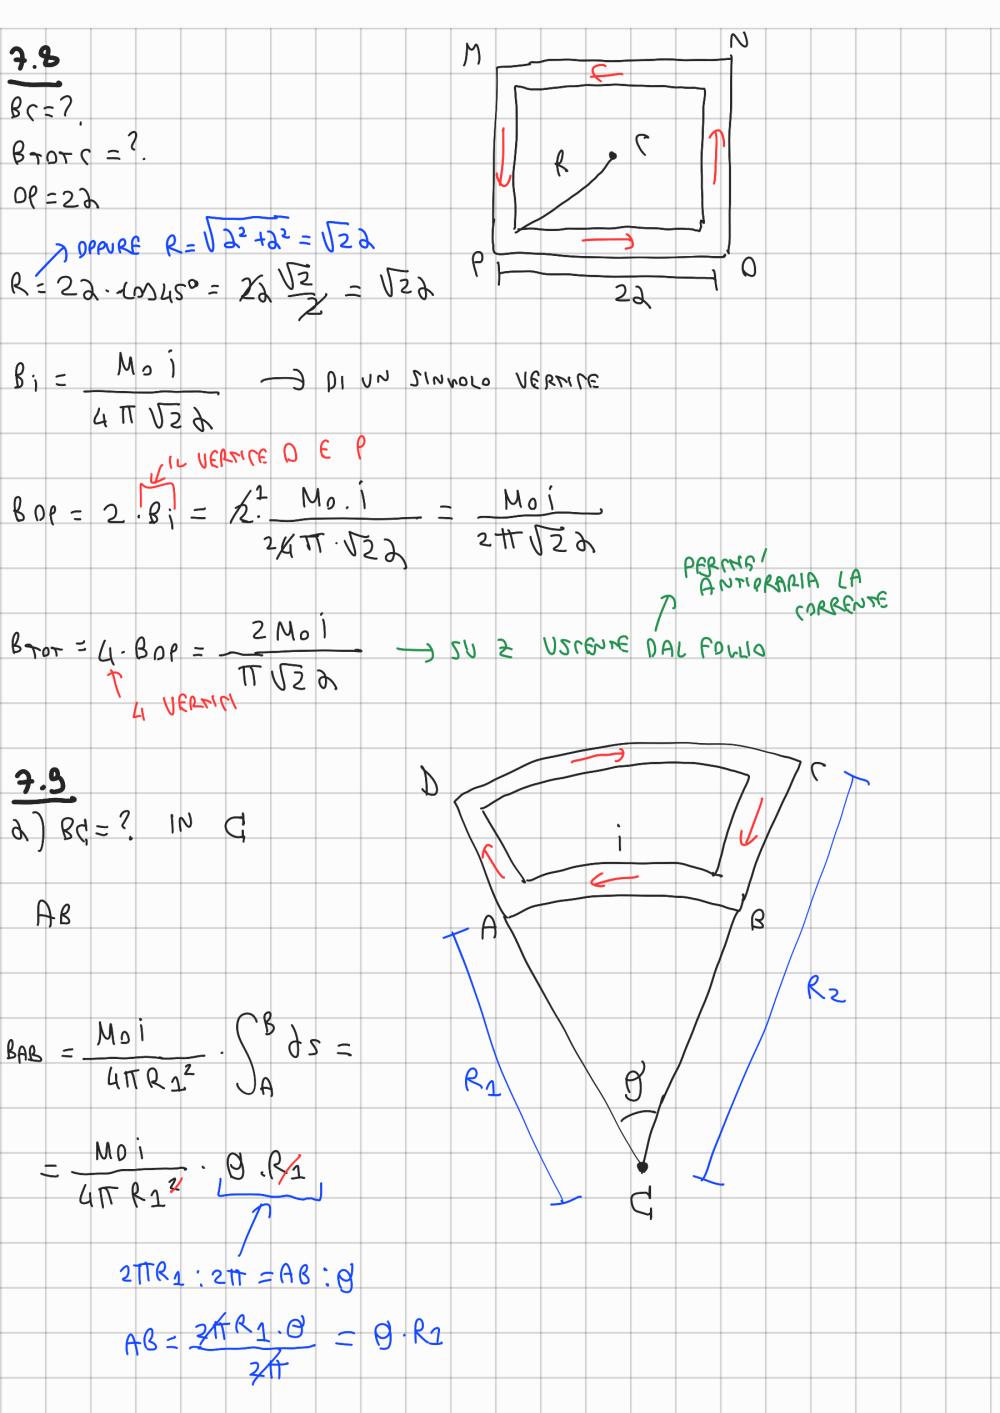 7.8
M
N
BC=?
BTOT C =?
OP=2a
C
R
P
O
2a
OPPURE R=√(a²+a²) = √2 a
R = 2a·cos45° = 2a √2/2 = √2 a
Bi = M0 i / 4π√2 a → DI UN SINGOLO VERTICE
IL VERTICE O E P
BOP = 2·Bi = 2·¹ M0·i / ²4π·√2 a = M0 i / 2π√2 a
PERCHE'
ANTIORARIA LA
CORRENTE
BTOT = 4·BOP = 2 M0 i / π√2 a → SU Z USCENTE DAL FOGLIO
4 VERTICI
7.9
D
C
a) BG=? IN G
i
AB
A
B
R1
R2
θ
G
BAB = M0 i / 4πR1² · ∫_A^B ds =
= M0 i / 4π R1² · θ·R1
2πR1 : 2π = AB : θ
AB = 2πR1·θ / 2π = θ·R1